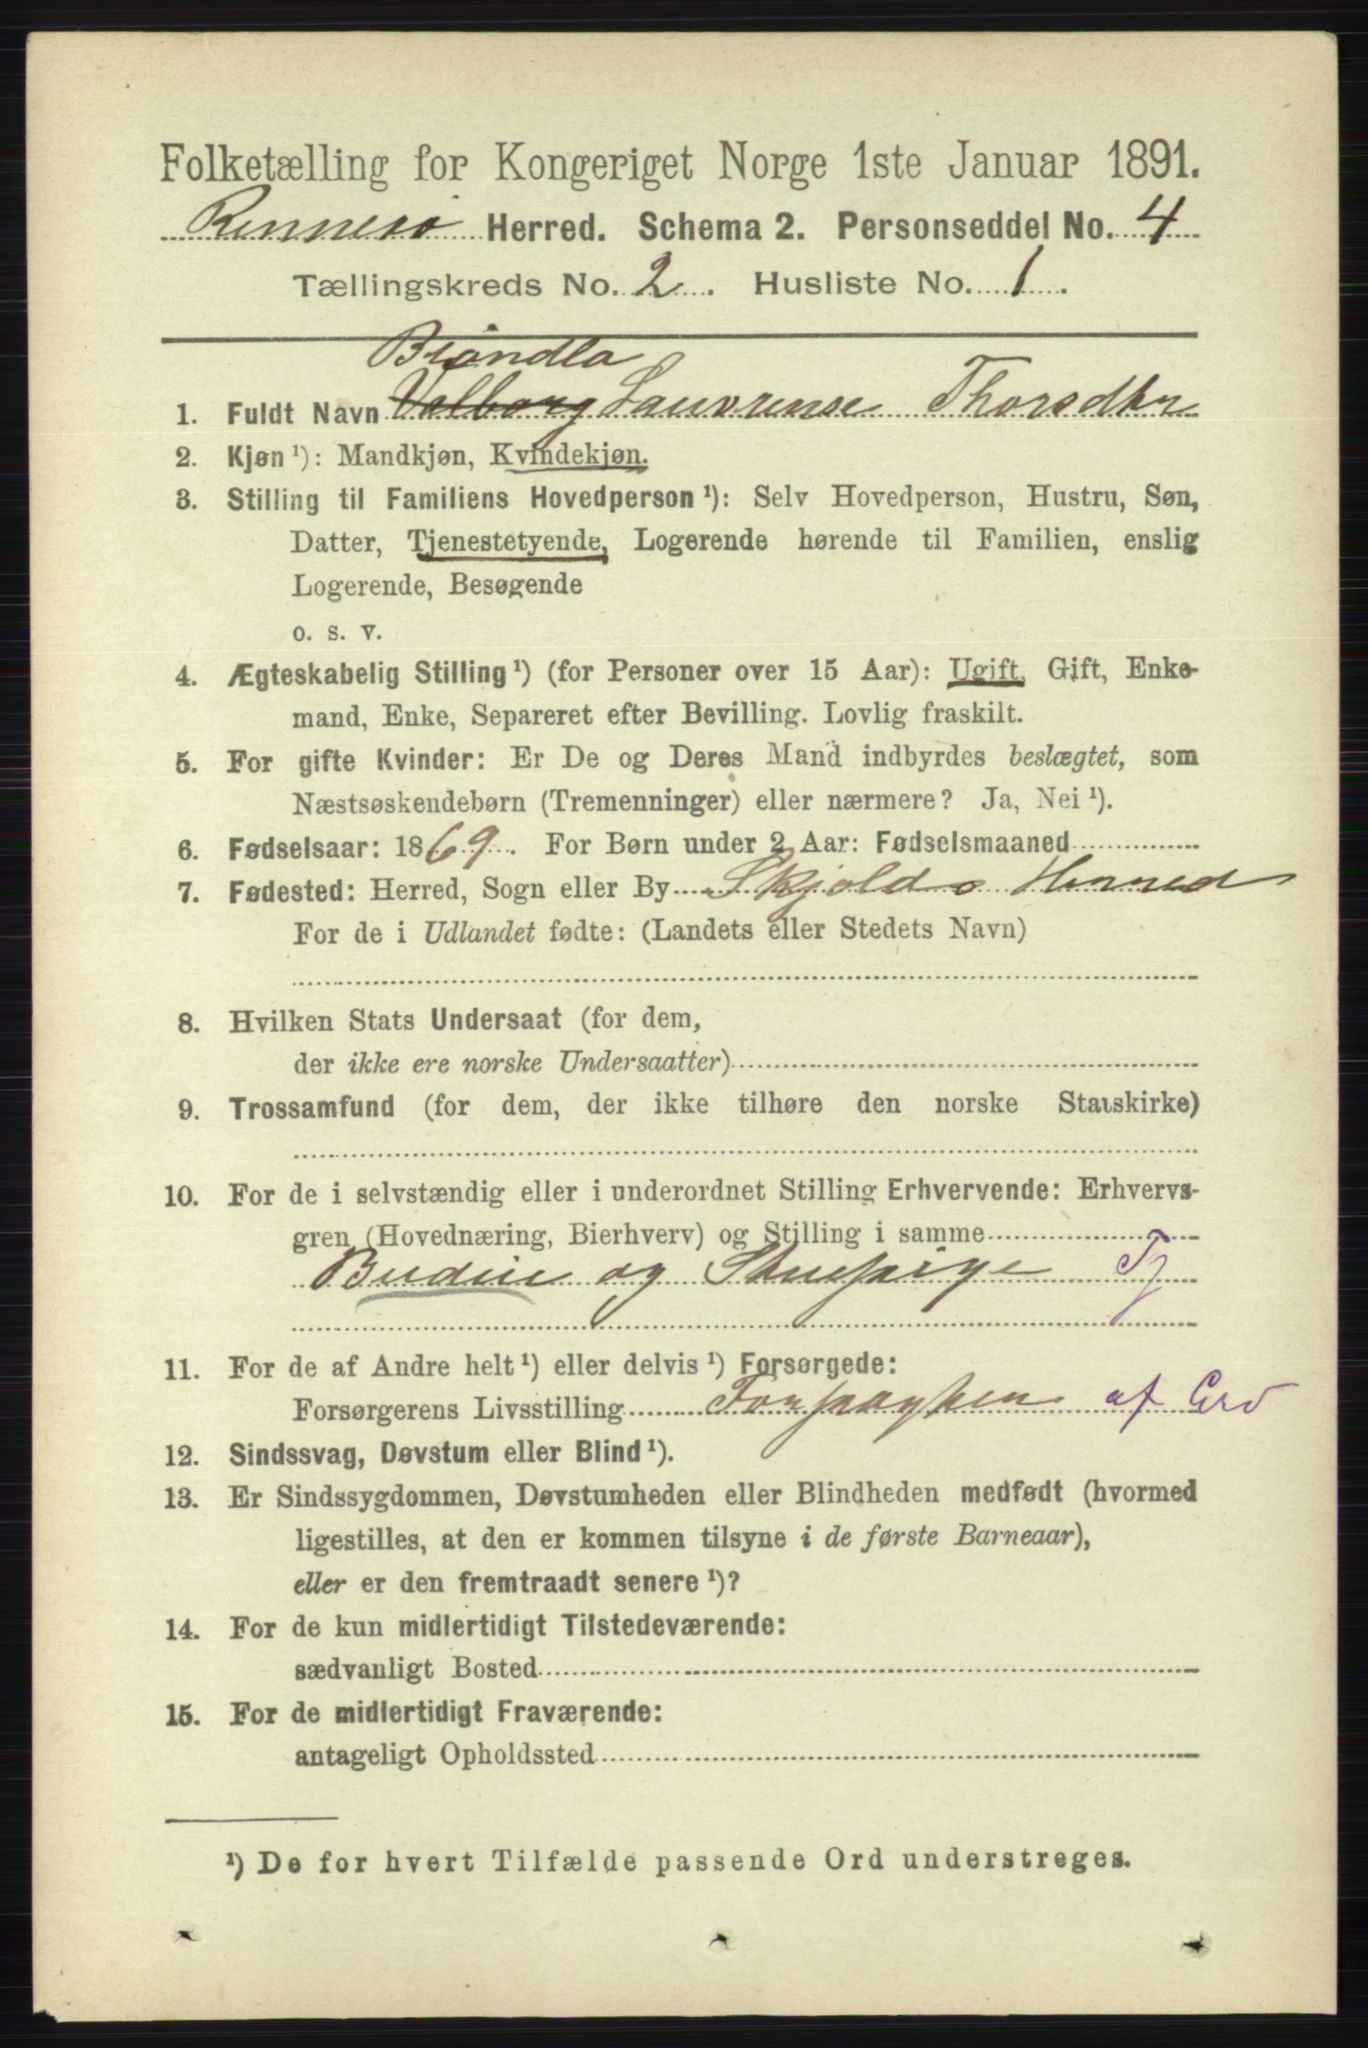 Folketælling for Kongeriget Norge 1ste Januar 1891.
Rennesø Herred. Schema 2. Personseddel No. 4
Tællingskreds No. 2. Husliste No. 1.
Brøndla
1. Fuldt Navn Valborg Laurense Thorsdtr
2. Kjøn ¹): Mandkjøn, Kvindekjøn.
3. Stilling til Familiens Hovedperson ¹): Selv Hovedperson, Hustru, Søn,
Datter, Tjenestetyende, Logerende hørende til Familien, enslig
Logerende, Besøgende
o. s. v.
4. Ægteskabelig Stilling ¹) (for Personer over 15 Aar): Ugift, Gift, Enke-
mand, Enke, Separeret efter Bevilling. Lovlig fraskilt.
5. For gifte Kvinder: Er De og Deres Mand indbyrdes beslægtet, som
Næstsøskendebørn (Tremenninger) eller nærmere? Ja, Nei ¹).
6. Fødselsaar: 1869. For Børn under 2 Aar: Fødselsmaaned
7. Fødested: Herred, Sogn eller By Skjolds Herred
For de i Udlandet fødte: (Landets eller Stedets Navn)
8. Hvilken Stats Undersaat (for dem,
der ikke ere norske Undersaatter)
9. Trossamfund (for dem, der ikke tilhøre den norske Statskirke)
10. For de i selvstændig eller i underordnet Stilling Erhvervende: Erhvervs-
gren (Hovednæring, Bierhverv) og Stilling i samme
Budeie og Stuepige Tj
11. For de af Andre helt ¹) eller delvis ¹) Forsørgede:
Forsørgerens Livsstilling Forpagteren af Grd
12. Sindssvag, Døvstum eller Blind ¹).
13. Er Sindssygdommen, Døvstumheden eller Blindheden medfødt (hvormed
ligestilles, at den er kommen tilsyne i de første Barneaar),
eller er den fremtraadt senere ¹)?
14. For de kun midlertidigt Tilstedeværende:
sædvanligt Bosted
15. For de midlertidigt Fraværende:
antageligt Opholdssted
¹) De for hvert Tilfælde passende Ord understreges.